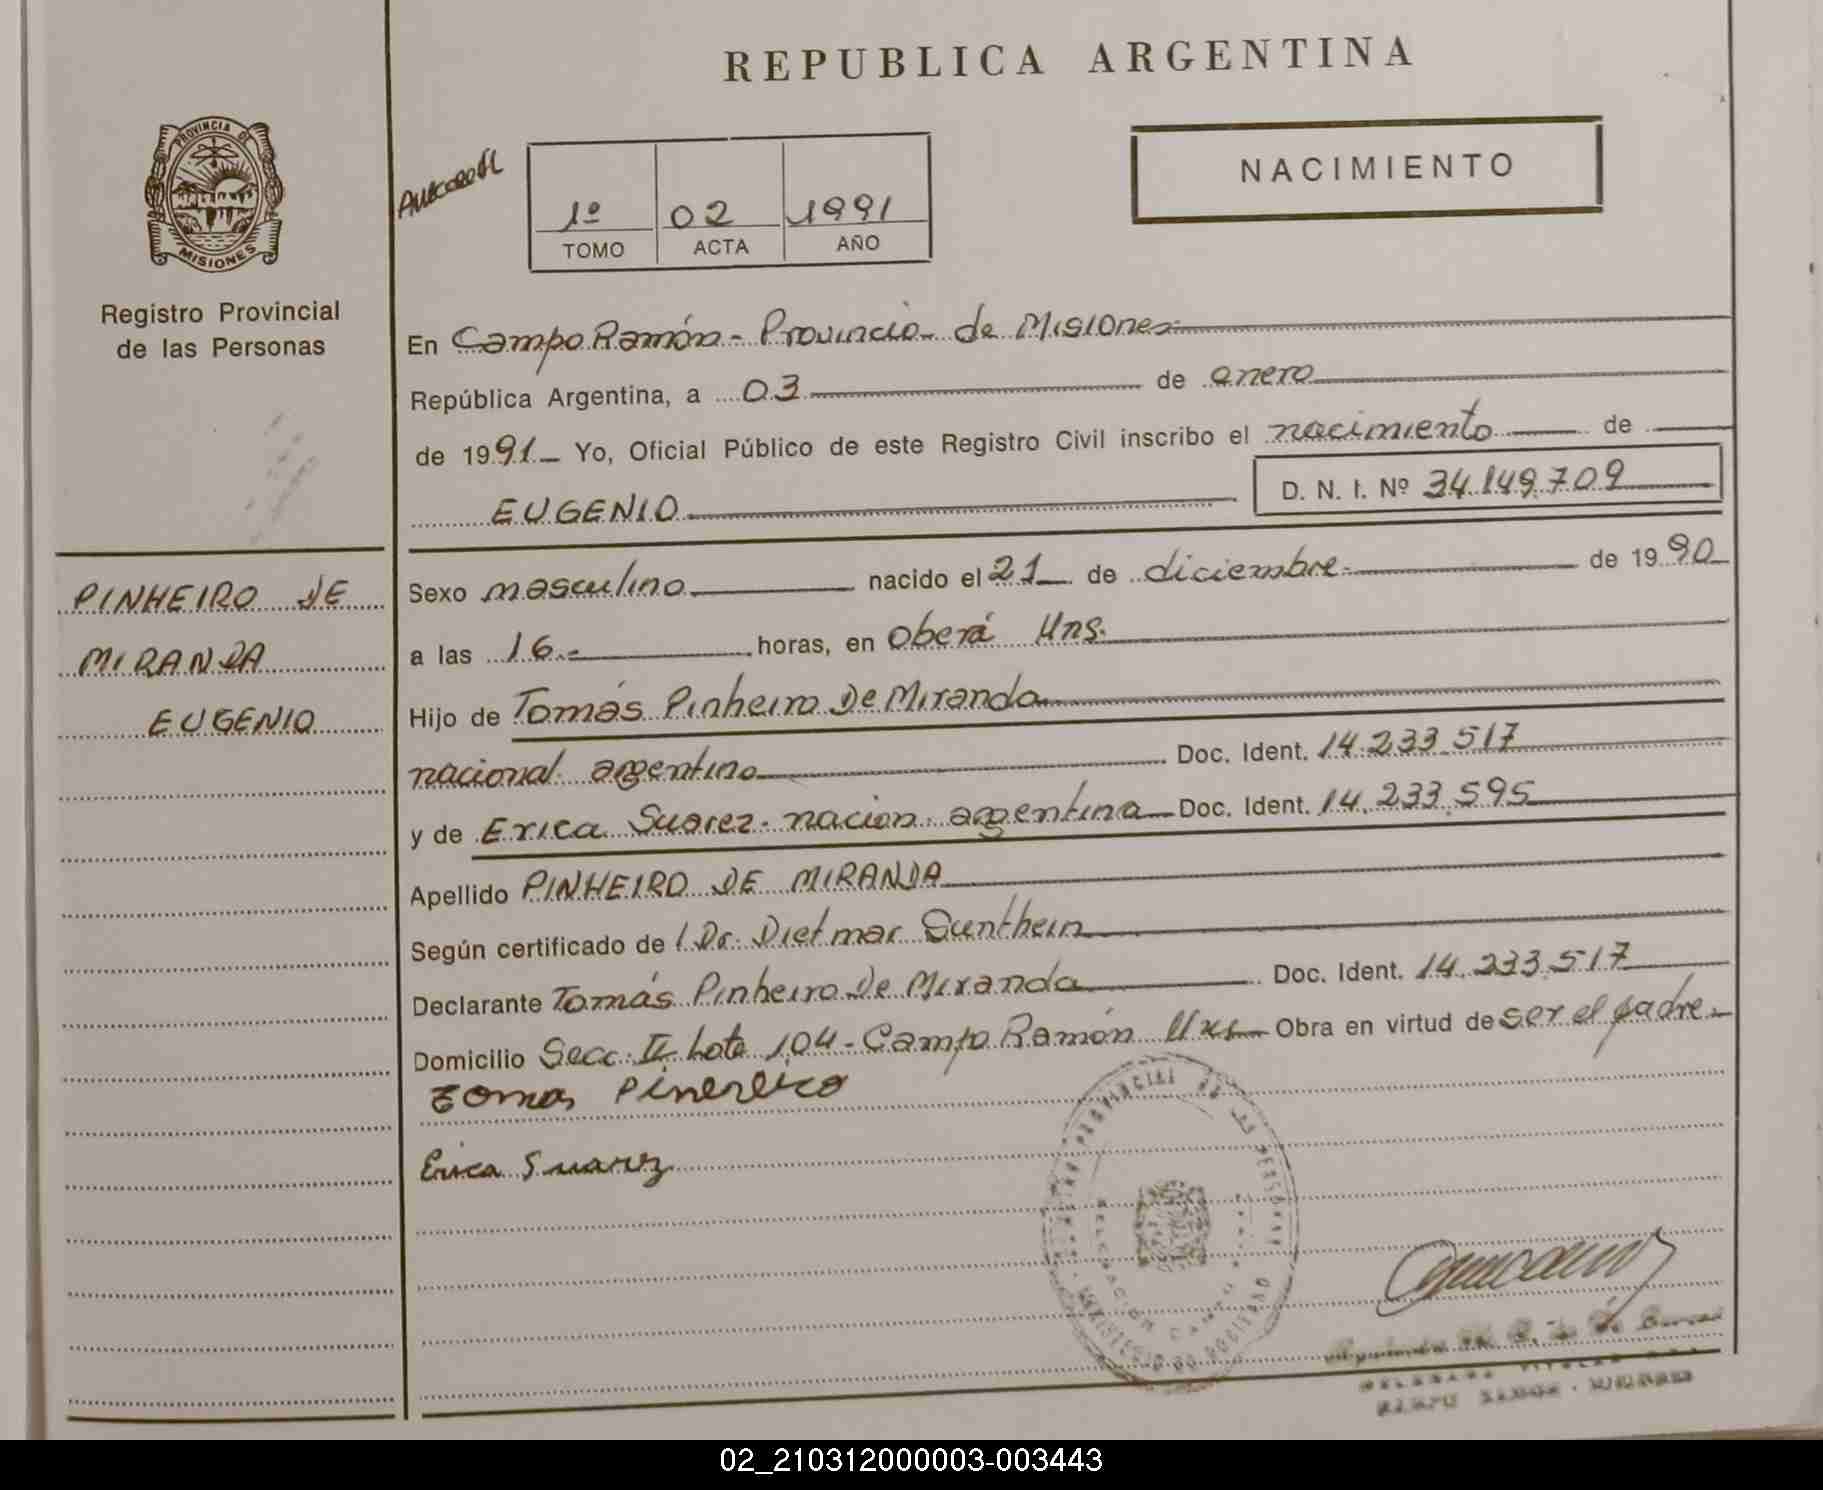 REPUBLICA ARGENTINA
PROVINCIA DE
MISIONES
Registro Provincial
de las Personas
1º 02 1991
TOMO ACTA AÑO
NACIMIENTO
En Campo Ramón - Provincia de Misiones
República Argentina, a 03 de enero
de 1991 Yo, Oficial Público de este Registro Civil inscribo el nacimiento de
EUGENIO D. N. I. Nº 34.149.709
PINHEIRO DE
MIRANDA
EUGENIO
Sexo masculino nacido el 21 de diciembre de 1990
a las 16.- horas, en Oberá Mns.
Hijo de Tomás Pinheiro De Miranda
nacional. argentino Doc. Ident. 14.233.517
y de Erica Suarez. nacion. argentina Doc. Ident. 14.233.595
Apellido PINHEIRO DE MIRANDA
Según certificado de Dr. Dietmar Sunthein
Declarante Tomás Pinheiro De Miranda Doc. Ident. 14.233.517
Domicilio Secc. II Lote 104 - Campo Ramón Obra en virtud de ser el padre
Tomas
Erica Suarez
02_210312000003-003443